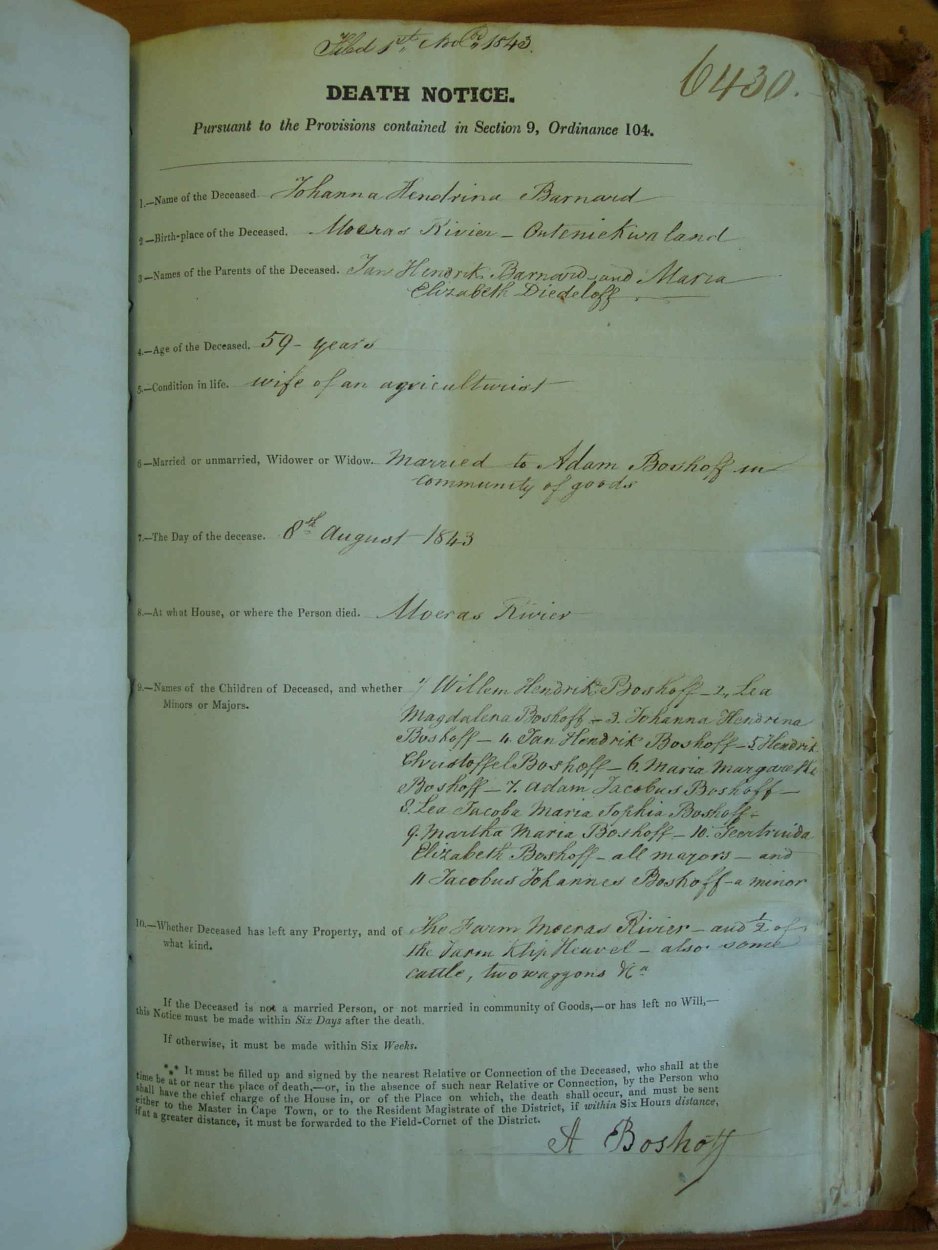 Filed 1st Novr. 1843.
6430.
DEATH NOTICE.
Pursuant to the Provisions contained in Section 9, Ordinance 104.
1.—Name of the Deceased. Johanna Hendrina Barnard
2—Birth-place of the Deceased. Moeras Rivier – Outeniekwaland
3—Names of the Parents of the Deceased. Jan Hendrik Barnard and Maria
Elizabeth Diedeloff
4.—Age of the Deceased. 59 – years
5.—Condition in life. wife of an agriculturist
6—Married or unmarried, Widower or Widow. Married to Adam Boshoff in
community of goods
7.—The Day of the decease. 8th August 1843
8.—At what House, or where the Person died. Moeras Rivier
9.—Names of the Children of Deceased, and whether 1, Willem Hendrik Boshoff – 2, Lea
Minors or Majors.
Magdalena Boshoff – 3. Johanna Hendrina
Boshoff – 4. Jan Hendrik Boshoff – 5. Hendrik
Christoffel Boshoff – 6. Maria Margaretha
Boshoff – 7. Adam Jacobus Boshoff –
8. Lea Jacoba Maria Sophia Boshoff –
9. Martha Maria Boshoff – 10. Geertruida
Elizabeth Boshoff – all majors – and
11 Jacobus Johannes Boshoff – a minor
10.—Whether Deceased has left any Property, and of The Farm Moeras Rivier – and 1/2 of
what kind. the Farm Klip Heuvel – also some
cattle, two waggons &ca
If the Deceased is not a married Person, or not married in community of Goods,—or has left no Will,—
this Notice must be made within Six Days after the death.
If otherwise, it must be made within Six Weeks.
*** It must be filled up and signed by the nearest Relative or Connection of the Deceased, who shall at the
time be at or near the place of death,—or, in the absence of such near Relative or Connection, by the Person who
shall have the chief charge of the House in, or of the Place on which, the death shall occur, and must be sent
either to the Master in Cape Town, or to the Resident Magistrate of the District, if within Six Hours distance,
if at a greater distance, it must be forwarded to the Field-Cornet of the District.
A Boshoff